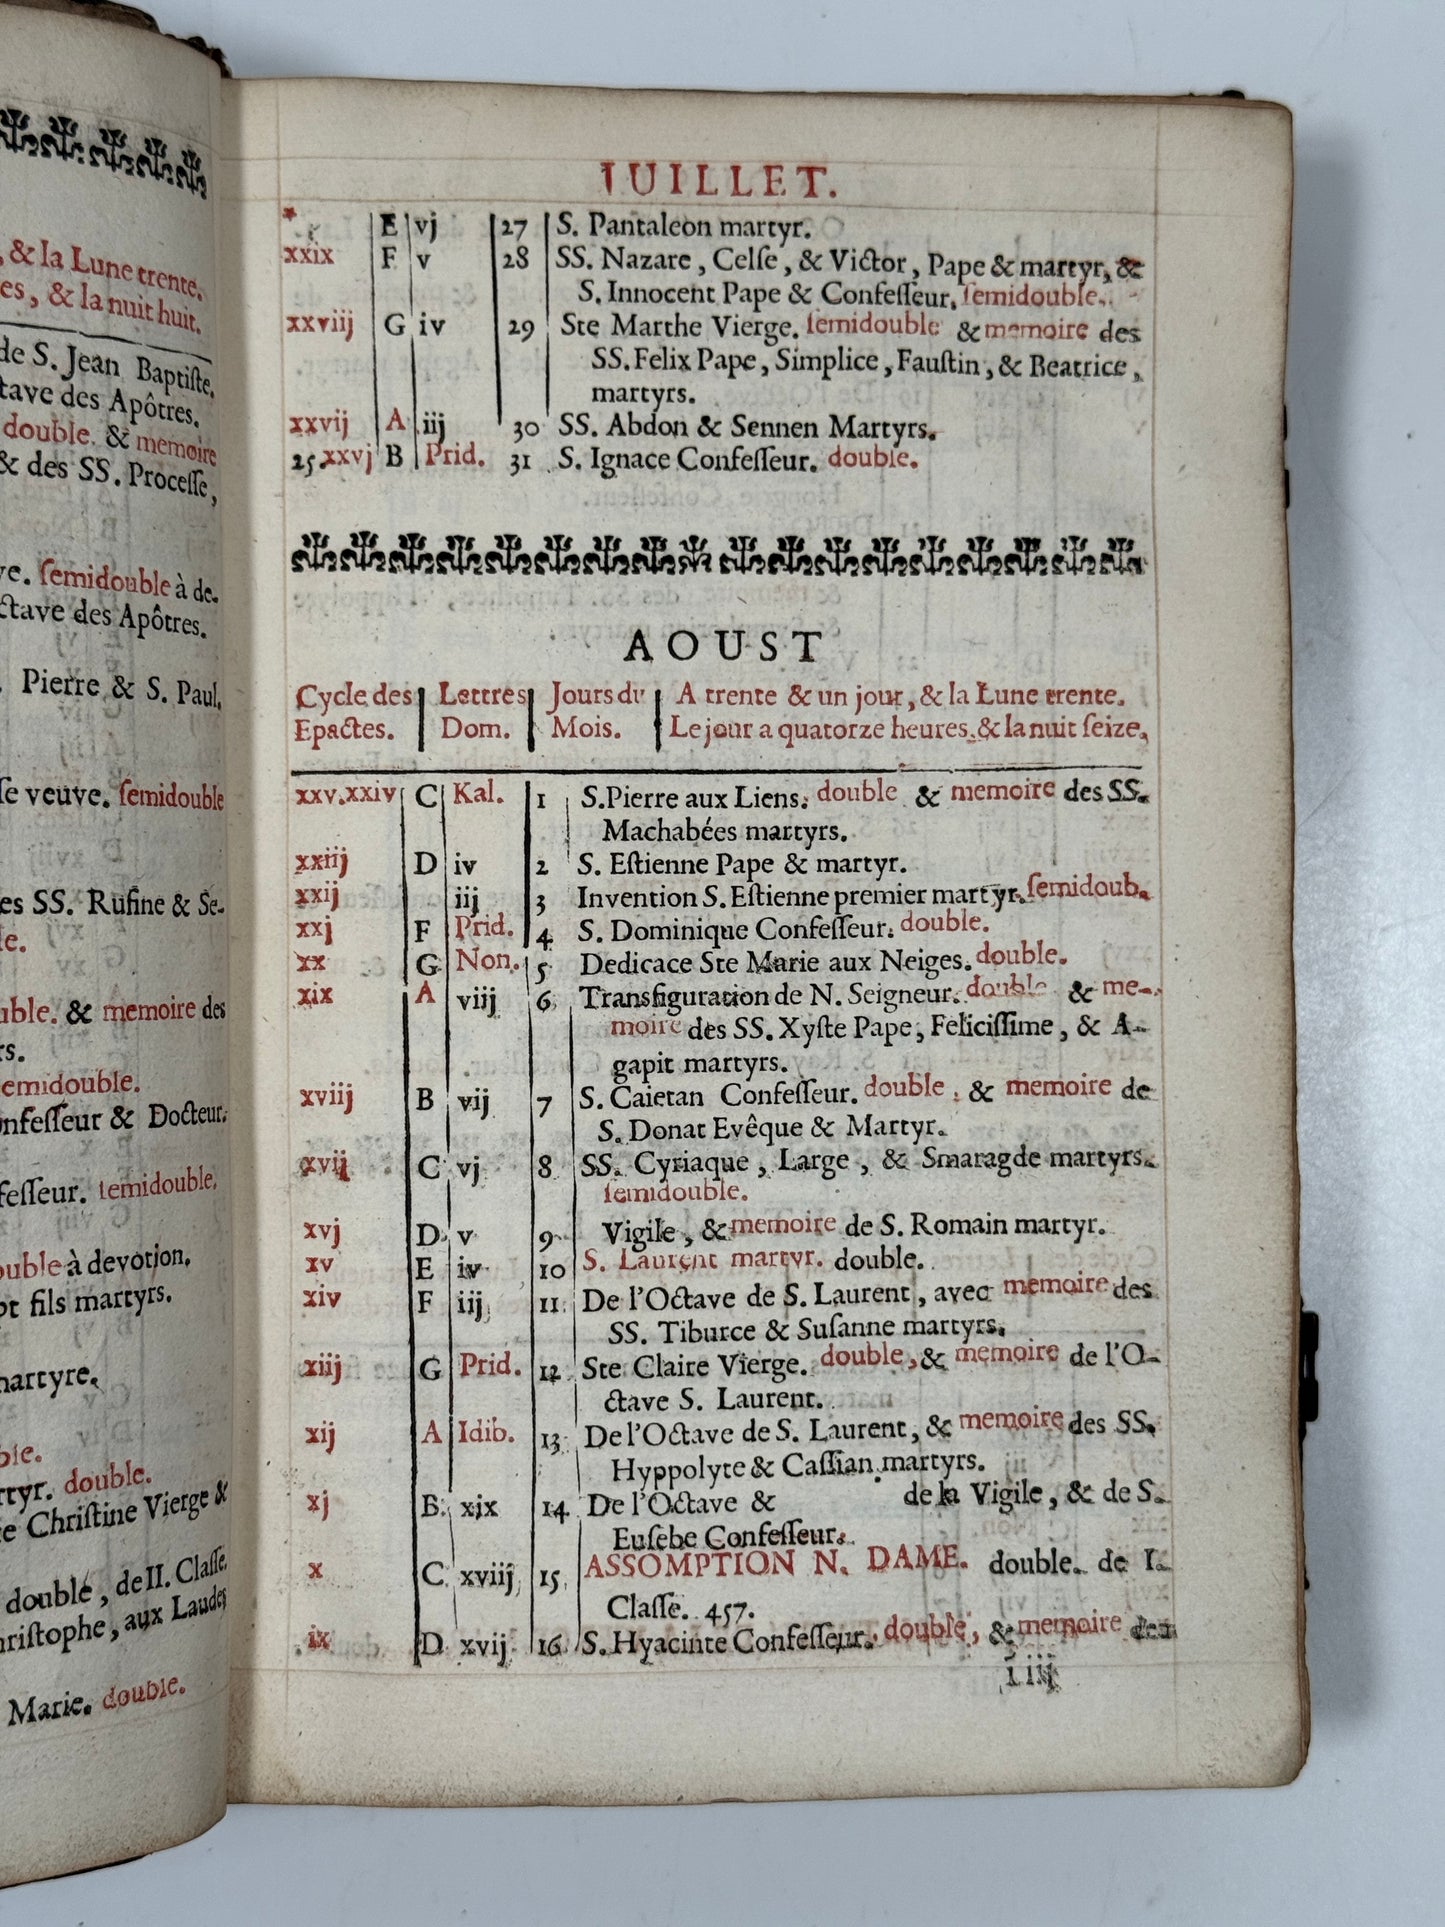 , & la Lune trente.
es, & la nuit huit.
de S. Jean Baptiſte.
ctave des Apôtres.
double. & memoire
& des SS. Proceſſe,
ve. ſemidouble à de-
ctave des Apôtres.
Pierre & S. Paul.
ſe veuve. ſemidouble
es SS. Rufine & Se-
le.
uble. & memoire des
rs.
ſemidouble.
onfeſſeur & Docteur.
feſſeur. ſemidouble.
ouble à devotion.
pt fils martyrs.
martyre.
ble.
rtyr. double.
te Chriſtine Vierge &
double, de II. Claſſe.
hriſtophe, aux Laudes
Marie. double.
IUILLET.
* E vj 27 S. Pantaleon martyr.
xxix F v 28 SS. Nazare, Celſe, & Victor, Pape & martyr, &
S. Innocent Pape & Confeſſeur. ſemidouble.
xxviij G iv 29 Ste Marthe Vierge. ſemidouble & memoire des
SS. Felix Pape, Simplice, Fauſtin, & Beatrice,
martyrs.
xxvij A iij 30 SS. Abdon & Sennen Martyrs.
25.xxvj B Prid. 31 S. Ignace Confeſſeur. double.
AOUST
Cycle des Lettres Jours du A trente & un jour, & la Lune trente.
Epactes. Dom. Mois. Le jour a quatorze heures, & la nuit ſeize.
xxv.xxiv C Kal. 1 S. Pierre aux Liens. double & memoire des SS.
Machabées martyrs.
xxiij D iv 2 S. Eſtienne Pape & martyr.
xxij iij 3 Invention S. Eſtienne premier martyr. ſemidoub.
xxj F Prid. 4 S. Dominique Confeſſeur. double.
xx G Non. 5 Dedicace Ste Marie aux Neiges. double.
xix A viij 6 Transfiguration de N. Seigneur. double & me-
moire des SS. Xyſte Pape, Feliciſſime, & A-
gapit martyrs.
xviij B vij 7 S. Caietan Confeſſeur. double, & memoire de
S. Donat Evêque & Martyr.
xvij C vj 8 SS. Cyriaque, Large, & Smaragde martyrs.
ſemidouble.
xvj D v 9 Vigile, & memoire de S. Romain martyr.
xv E iv 10 S. Laurent martyr. double.
xiv F iij 11 De l'Octave de S. Laurent, avec memoire des
SS. Tiburce & Suſanne martyrs.
xiij G Prid. 12 Ste Claire Vierge. double, & memoire de l'O-
ctave S. Laurent.
xij A Idib. 13 De l'Octave de S. Laurent, & memoire des SS.
Hyppolyte & Caſſian martyrs.
xj B xix 14 De l'Octave & de la Vigile, & de S.
Euſebe Confeſſeur.
x C xviij 15 ASSOMPTION N. DAME. double. de I.
Claſſe. 457.
ix D xvij 16 S. Hyacinte Confeſſeur. double, & memoire de